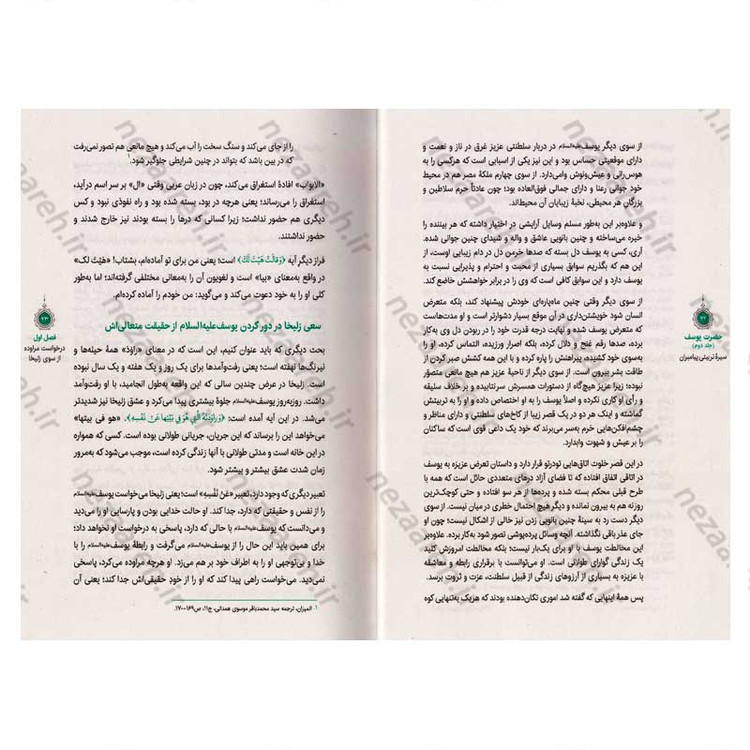 از سوی دیگر یوسف علیه‌السلام در دربار سلطنتی عزیز غرق در ناز و نعمت و
دارای موقعیتی حساس بود و این نیز یکی از اسبابی است که هرکسی را به
هوس‌رانی و عیش‌ونوش وامی‌دارد. از سوی چهارم ملکهٔ مصر هم در محیط
خود جوانی رعنا و دارای جمالی فوق‌العاده بود؛ چون عادتاً حرم سلاطین و
بزرگان هر محیطی، نخبهٔ زیبایان آن محیط‌اند.
و علاوه‌بر این به‌طور مسلم وسایل آرایشی در اختیار داشته که هر بیننده را
خیره می‌ساخته و چنین بانویی عاشق و واله و شیدای چنین جوانی شده.
آری، کسی به یوسف دل بسته که صدها خرمن دل در دام زیبایی اوست، از
این هم که بگذریم سوابق بسیاری از محبت و احترام و پذیرایی نسبت به
یوسف دارد و این سوابق کافی است که وی را در برابر خواهشش خاضع کند.
از سوی دیگر وقتی چنین ماه‌پاره‌ای خودش پیشنهاد کند، بلکه متعرض
انسان شود خویشتن‌داری در آن موقع بسیار دشوارتر است و او مدت‌هاست
که متعرض یوسف شده و نهایت درجه قدرت خود را در ربودن دل وی به‌کار
بسته، صدها رقم غنج و دلال کرده، بلکه اصرار ورزیده، التماس کرده، او را
به‌سوی خود کشیده، پیراهنش را پاره کرده و با این همه کشش صبر کردن از
طاقت بشر بیرون است. از سوی دیگر از ناحیهٔ عزیز هم هیچ مانعی متصوّر
نبوده؛ زیرا عزیز هیچ‌گاه از دستورات همسرش سرنتابیده و بر خلاف سلیقه
و رأی او کاری نکرده و اصلاً یوسف را به او اختصاص داده و او را به تربیتش
گماشته و اینک هر دو در یک قصر زیبا از کاخ‌های سلطنتی و دارای مناظر و
چشم‌افکن‌هایی خرم به‌سر می‌برند که خود یک داعی قوی است که ساکنان
را بر عیش و شهوت وابدارد.
در این قصر خلوت اتاق‌هایی تودرتو قرار دارد و داستان تعرض عزیزه به یوسف
در اتاقی اتفاق افتاده که تا فضای آزاد درهای متعددی حائل است که همه با
طرح قبلی محکم بسته شده و پرده‌ها از هر سو افتاده و حتی کوچک‌ترین
روزنه هم به بیرون نمانده و دیگر هیچ احتمال خطری در میان نیست. از سوی
دیگر دست رد به سینهٔ چنین بانویی زدن نیز خالی از اشکال نیست؛ چون او
جای عذر باقی نگذاشته. آنچه وسائل پرده‌پوشی تصور شود به‌کار برده. علاوه‌بر
این مخالطت یوسف با او برای یک‌بار نیست؛ بلکه مخالطت امروزش کلید
یک زندگی گوارای طولانی است. او می‌توانست با برقراری رابطه و معاشقه
با عزیزه به بسیاری از آرزوهای زندگی از قبیل سلطنت، عزت و ثروت برسد.
پس همهٔ اینهایی که گفته شد اموری تکان‌دهنده بودند که هریک به‌تنهایی کوه
۲۲
حضرت یوسف
(جلد دوم)
سیرهٔ تربیتی پیامبران
را از جای می‌کند و سنگ سخت را آب می‌کند و هیچ مانعی هم تصور نمی‌رفت
که در بین باشد که بتواند در چنین شرایطی جلوگیر شود.۱
«الابواب» افادهٔ استغراق می‌کند، چون در زبان عربی وقتی «ال» بر سر اسم درآید،
استغراق را می‌رساند؛ یعنی هرچه در بود، بسته شده بود و راه نفوذی نبود و کس
دیگری هم حضور نداشت؛ زیرا کسانی که درها را بسته بودند نیز خارج شدند و
حضور نداشتند.
فراز دیگر آیه ﴿وَقَالَتْ هَيْتَ لَكَ﴾ است؛ یعنی من برای تو آماده‌ام، بشتاب! «هَيْتَ لک»
در واقع به‌معنای «بیا» است و لغویون آن را به‌معانی مختلفی گرفته‌اند؛ اما به‌طور
کلی او را به خود دعوت می‌کند و می‌گوید: من خودم را آماده کرده‌ام.
سعی زلیخا در دور کردن یوسف علیه‌السلام از حقیقت متعالی‌اش
بحث دیگری که باید عنوان کنیم، این است که در معنای «راوَدَ» همهٔ حیله‌ها و
نیرنگ‌ها نهفته است؛ یعنی رفت‌وآمدها برای یک روز و یک هفته و یک سال نبوده
است. زلیخا در عرض چندین سالی که این واقعه به‌طول انجامید، با او رفت‌وآمد
داشت. روزبه‌روز یوسف علیه‌السلام جلوهٔ بیشتری پیدا می‌کرد و عشق زلیخا نیز بیشتر
می‌شد. در این آیه آمده است: ﴿وَرَاوَدَتْهُ الَّتِي هُوَ فِي بَيْتِهَا عَنْ نَفْسِهِ﴾. «هو فی بیتها»
می‌خواهد این را برساند که این جریان، جریانی طولانی بوده است. کسی که همواره
در این خانه است و مدتی طولانی با آنها زندگی کرده است، موجب می‌شود که به‌مرور
زمان شدت عشق بیشتر و بیشتر شود.
تعبیر دیگری که وجود دارد، تعبیر «عَنْ نَفْسِهِ» است؛ یعنی زلیخا می‌خواست یوسف علیه‌السلام
را از نفس و حقیقتی که دارد، جدا کند. او حالت خدایی بودن و پارسایی او را می‌دید
و می‌دانست که یوسف علیه‌السلام با حالی که دارد، پاسخی به درخواست او نخواهد داد؛
برای همین باید این حال را از یوسف علیه‌السلام می‌گرفت و رابطهٔ یوسف علیه‌السلام با
خدا و بی‌توجهی او را به اطراف خود بر هم می‌زد. او هرچه مراوده می‌کرد، پاسخی
نمی‌دید. می‌خواست راهی پیدا کند که او را از خودِ حقیقی‌اش جدا کند؛ یعنی آن
۱. المیزان، ترجمه سید محمدباقر موسوی همدانی، ج۱۱، ص۱۶۹-۱۷۰.
۲۳
فصل اول
درخواست مراوده
از سوی زلیخا
nezaareh.ir